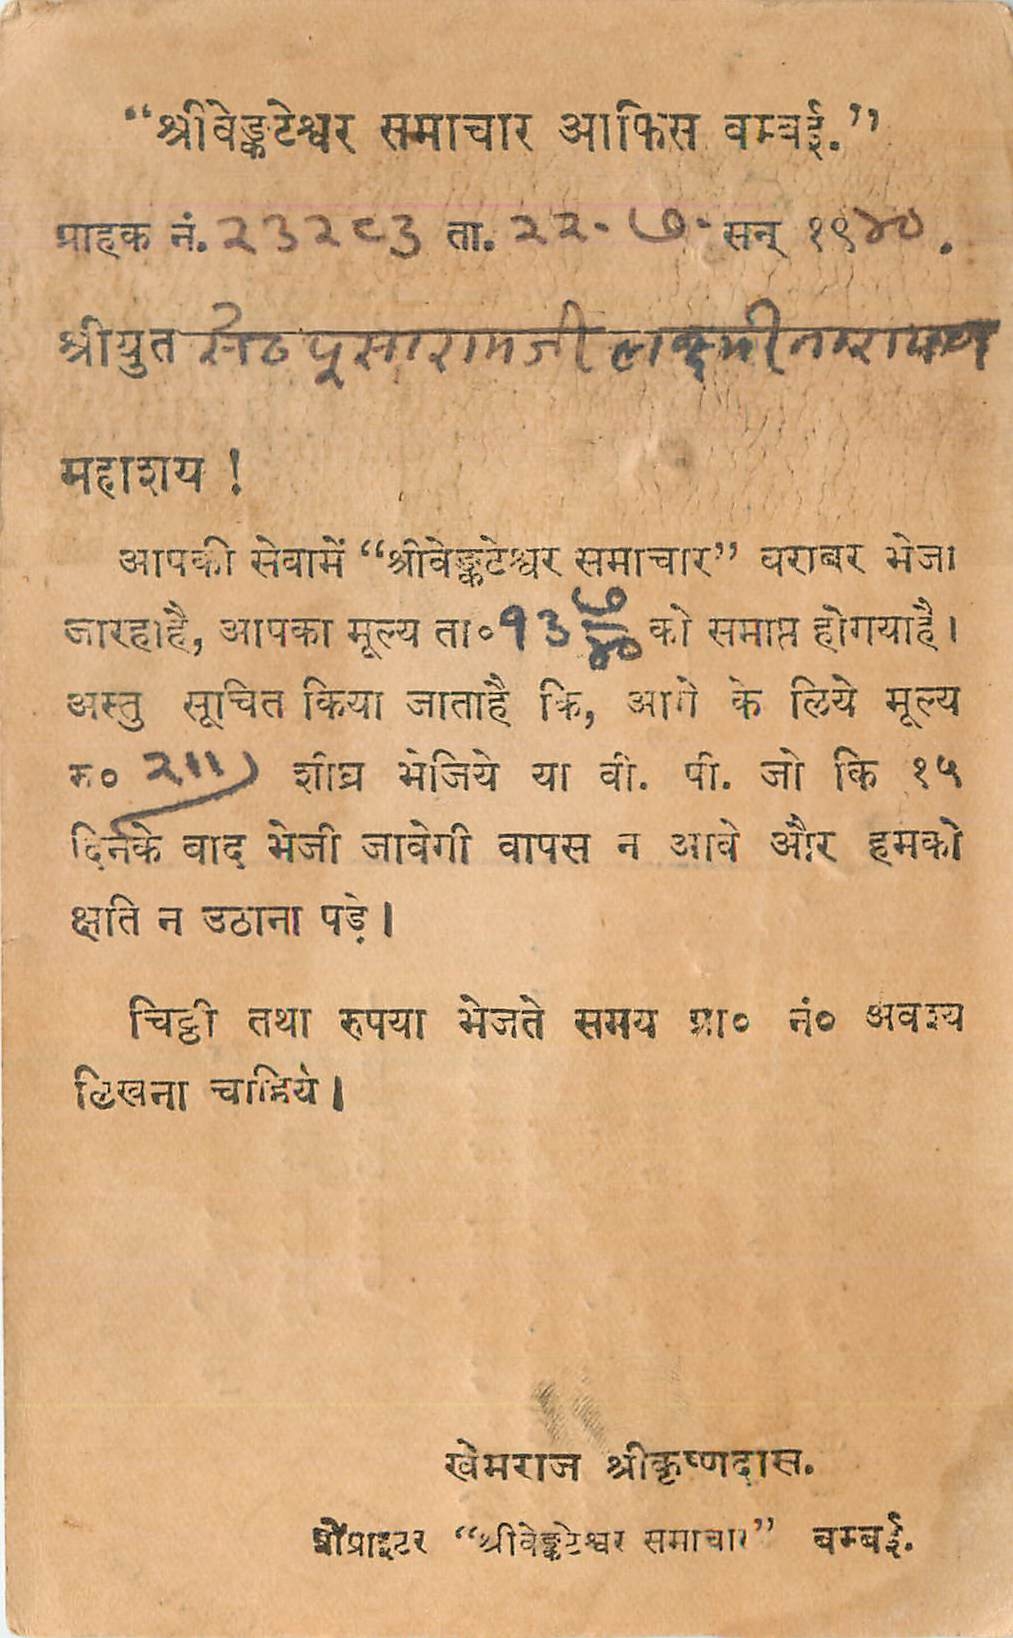 “श्रीवेङ्कटेश्वर समाचार आफिस बम्बई.”
ग्राहक नं. २३२८३ ता. २२-७-सन् १९४०.
श्रीयुत सेठ पूसारामजी लक्ष्मीनारायण
महाशय !
आपकी सेवामें “श्रीवेङ्कटेश्वर समाचार” बराबर भेजा
जारहाहै, आपका मूल्य ता० १३ ७/४० को समाप्त होगयाहै।
अस्तु सूचित किया जाताहै कि, आगे के लिये मूल्य
रु० २॥) शीघ्र भेजिये या वी. पी. जो कि १५
दिनके बाद भेजी जावेगी वापस न आवे और हमको
क्षति न उठाना पड़े।
चिट्ठी तथा रुपया भेजते समय ग्रा० नं० अवश्य
लिखना चाहिये।
खेमराज श्रीकृष्णदास.
प्रोप्राइटर “श्रीवेङ्कटेश्वर समाचार” बम्बई.